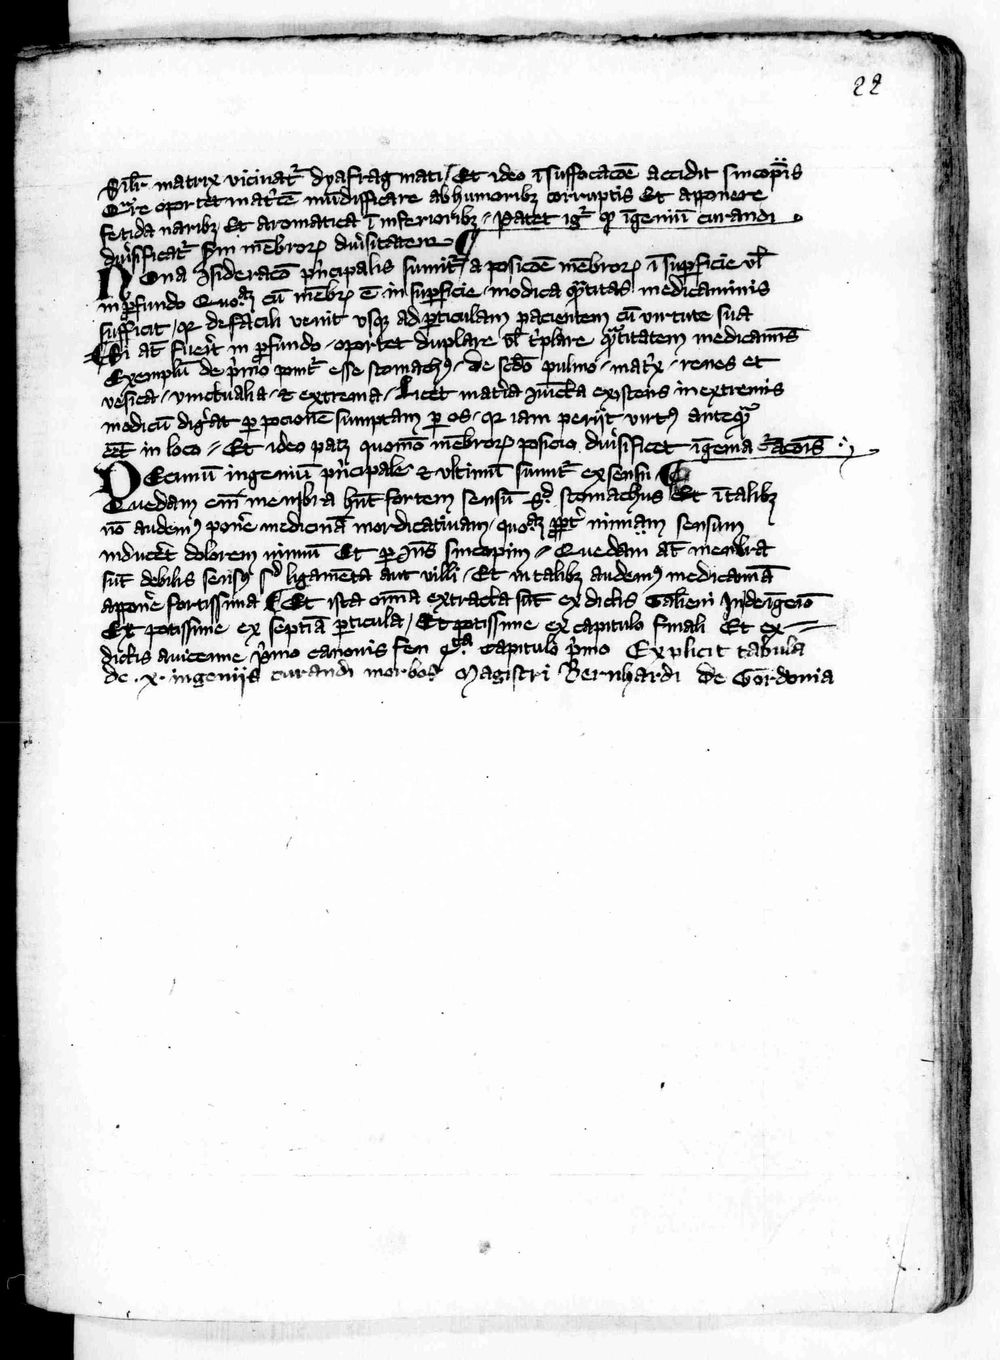 22
Sil'r matrix vicinat᷑ dyafragmati / Et ideo ī suffocacōe accidit sincopis
Qᵃre oportet mat'cē mūdifficare ab humoribꝫ corruptis Et apponere
fetida naribꝫ Et aromatica ī inferioribꝫ / Patet igᷣ qꝫ īgeniū curandi
diūsificat᷑ scdm mēbroꝝ diūsitatem ¶
Nona ꝯsideracō p'ncipalis sumit᷑ a posicōe mēbroꝝ ī suꝑficie vl'
in ꝓfundo cū mēbꝝ ē in suꝑficie / modica qᵃntitas medicaminis
sufficit / qꝛ de facili venit vsqꝫ ad ꝑticulam pacientem cū virtute sua
¶ Si at̄ fuer̄t in ꝓfundo / oportet duplare vl' t'plare qᵃntitatem medicaīs
Exemplū de p'mo ponit᷑ esse stomachꝰ / de scdo pulmo / mat'x / renes et
vesica / iunctualia / & extrema / Licet mat'ia existens in extremis
medicū dig'at ꝑ pocionē sumptam ꝑ os / qꝛ iam periit virtꝰ anteqᵃꝫ
eēt in loco / Et ideo patꝫ quomō mēbroꝝ posicio diūsificet īgenia c'acōis
Decimū ingeniū p'ncipale & vltimū sumit᷑ ex sensu ¶
Quedam em̄ membra hn̄t fortem sensū sꝫ stomachus Et ī talibꝫ
nō audemꝰ pon'e medicinā mordicatiuam / ꝓpt' nimiam sensum
induceret dolorem nimiū Et ꝑ ꝯn̄s sincopim / Quedam at̄ membra
sūt debilis sensꝰ sꝫ ligamēta aut villi / Et in talibꝫ audemꝰ medicamā
appon'e fortissima ¶ Et ista oīnia extracta sūt ex dictis Galieni In de īgenio
Et potissime ex septīa ꝑticula / Et potissime ex capitulo finali Et ex
dictis auicenne p'mo canonis fen qᵃrta capitulo p'mo Explicit tabula
de .x. ingenijs curandi morbos Magistri Bernhardi de Gordonia